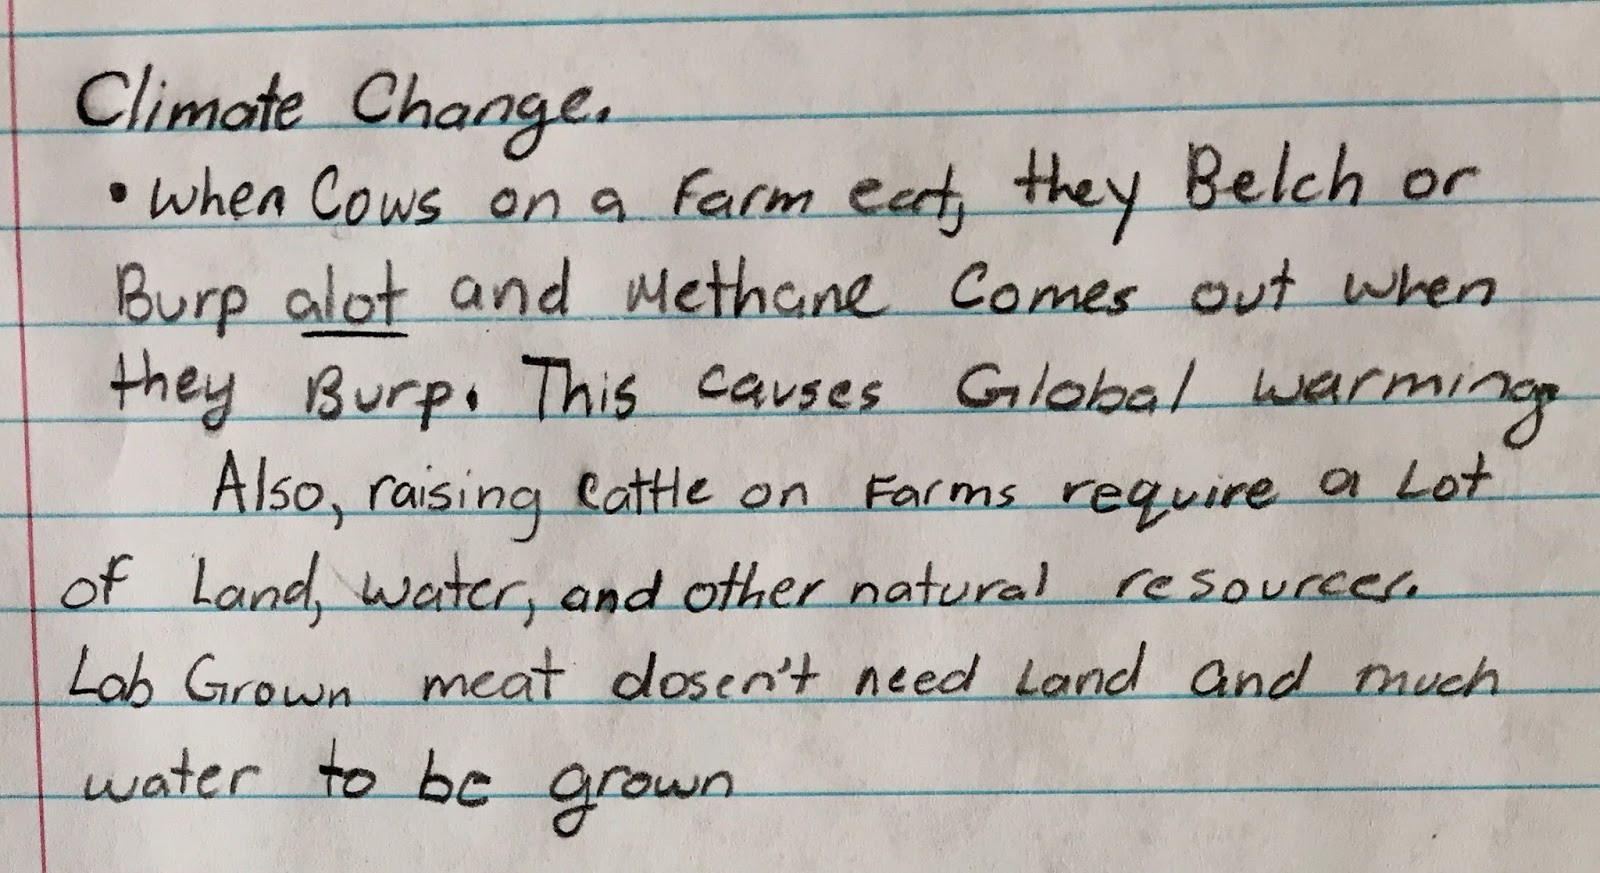 Climate Change.
• When Cows on a Farm eat, they Belch or
Burp alot and Methane Comes out when
they Burp. This causes Global warming.
Also, raising cattle on Farms require a Lot
of Land, water, and other natural resources.
Lab Grown meat dosen't need Land and much
water to be grown